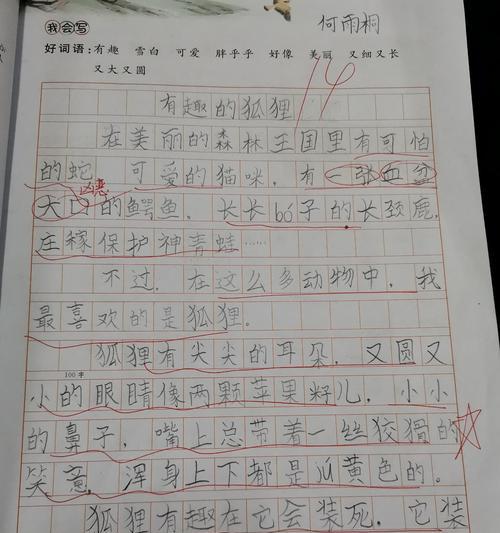 我会写
何雨桐
好词语:有趣 雪白 可爱 胖乎乎 好像 美丽 又细又长
又大又圆
14
有趣的狐狸
在美丽的森林王国里有可怕
的蛇 可爱的猫咪,有一张血盆
凶恶
大口的鳄鱼,长长bó子的长颈鹿,
庄稼保护神青蛙……
不过,在这么多动物中,我
最喜欢的是狐狸。
狐狸有尖尖的耳朵,又圆又
100字
小的眼睛像两颗苹果籽儿,小小
的鼻子,嘴上总带着一丝狡猾的
笑意,浑身上下都是jú黄色的。
狐狸有趣在它会装死,它装